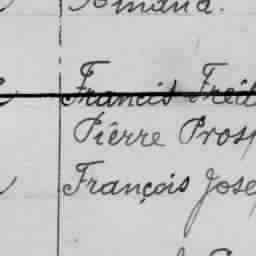 Armand.
Francis Fréd
Pierre Prosp
François Jose